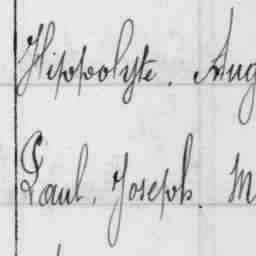 Hippolyte. Aug
Paul, Joseph. M